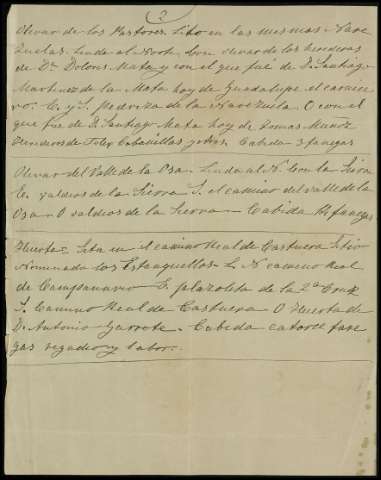 2
Olivar de los Pastores. Sito en las mismas Nave
zuelas. Linda al Norte con olivar de los herederos
de Dª Dolores Mata y con el que fué de D. Santiago
Martinez de la Mata hoy de Guadalupe el carnice
ro. E. y S. pedriza de la Navezuela. O con el
que fue de D. Santiago Mata hoy de Tomas Muñoz
Herederos de Felix Cabanillas y otros. Cabida 3 fanegas
Olivar del Valle de la Osa. Linda al N. con la Sierra
E. valdios de la Sierra S. el camino del valle de la
Osa. O valdios de la Sierra. Cabida fanegas
Huerta. Sita en el camino Real de Castuera Sitio
nominado los Estanquillos. L. N camino Real
de Campanario E. plazoleta de la 2ª Cruz
S. Camino Real de Castuera O Huerta de
D. Antonio Garrote. Cabida catorce fane
gas regadio y labor.